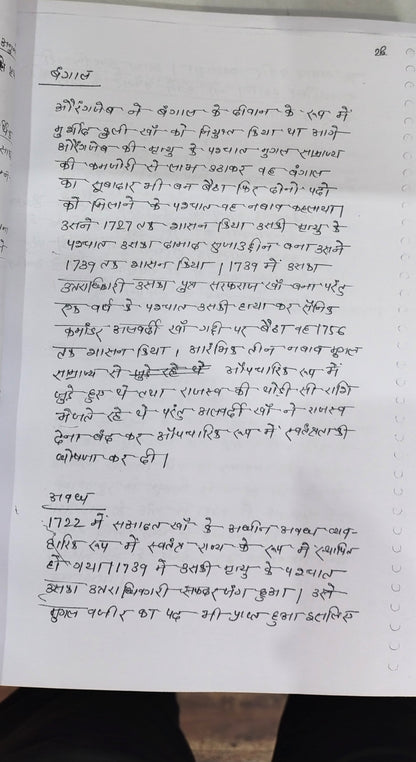 28
बंगाल
औरंगजेब ने बंगाल के दीवान के रूप में
मुर्शीद कुली खाँ को नियुक्त किया था आगे
औरंगजेब की मृत्यु के पश्चात मुगल साम्राज्य
की कमजोरी से लाभ उठाकर वह बंगाल
का सूबादार भी बन बैठा फिर दोनों पदों
को मिलाने के पश्चात वह नवाब कहलाया।
उसने 1727 तक शासन किया उसकी मृत्यु के
पश्चात उसका दामाद शुजाउद्दीन बना उसने
1739 तक शासन किया। 1739 में उसका
उत्तराधिकारी उसका पुत्र सरफराज खाँ बना परंतु
एक वर्ष के पश्चात उसकी हत्या कर सैनिक
कमांडर अलवर्दी खाँ गद्दी पर बैठा वह 1756
तक शासन किया। आरंभिक तीन नवाब मुगल
साम्राज्य से जुड़े रहे थे औपचारिक रूप में
जुड़े हुए थे तथा राजस्व की थोड़ी सी राशि
भेजते रहे थे परंतु अलवर्दी खाँ ने राजस्व
देना बंद कर औपचारिक रूप में स्वतंत्रता की
घोषणा कर दी।
अवध
1722 में सआदत खाँ के अधीन अवध व्यव-
हारिक रूप में स्वतंत्र राज्य के रूप में स्थापित
हो गया। 1739 में उसकी मृत्यु के पश्चात
उसका उत्तराधिकारी सफदरजंग हुआ। उसे
मुगल वजीर का पद भी प्राप्त हुआ इसलिए